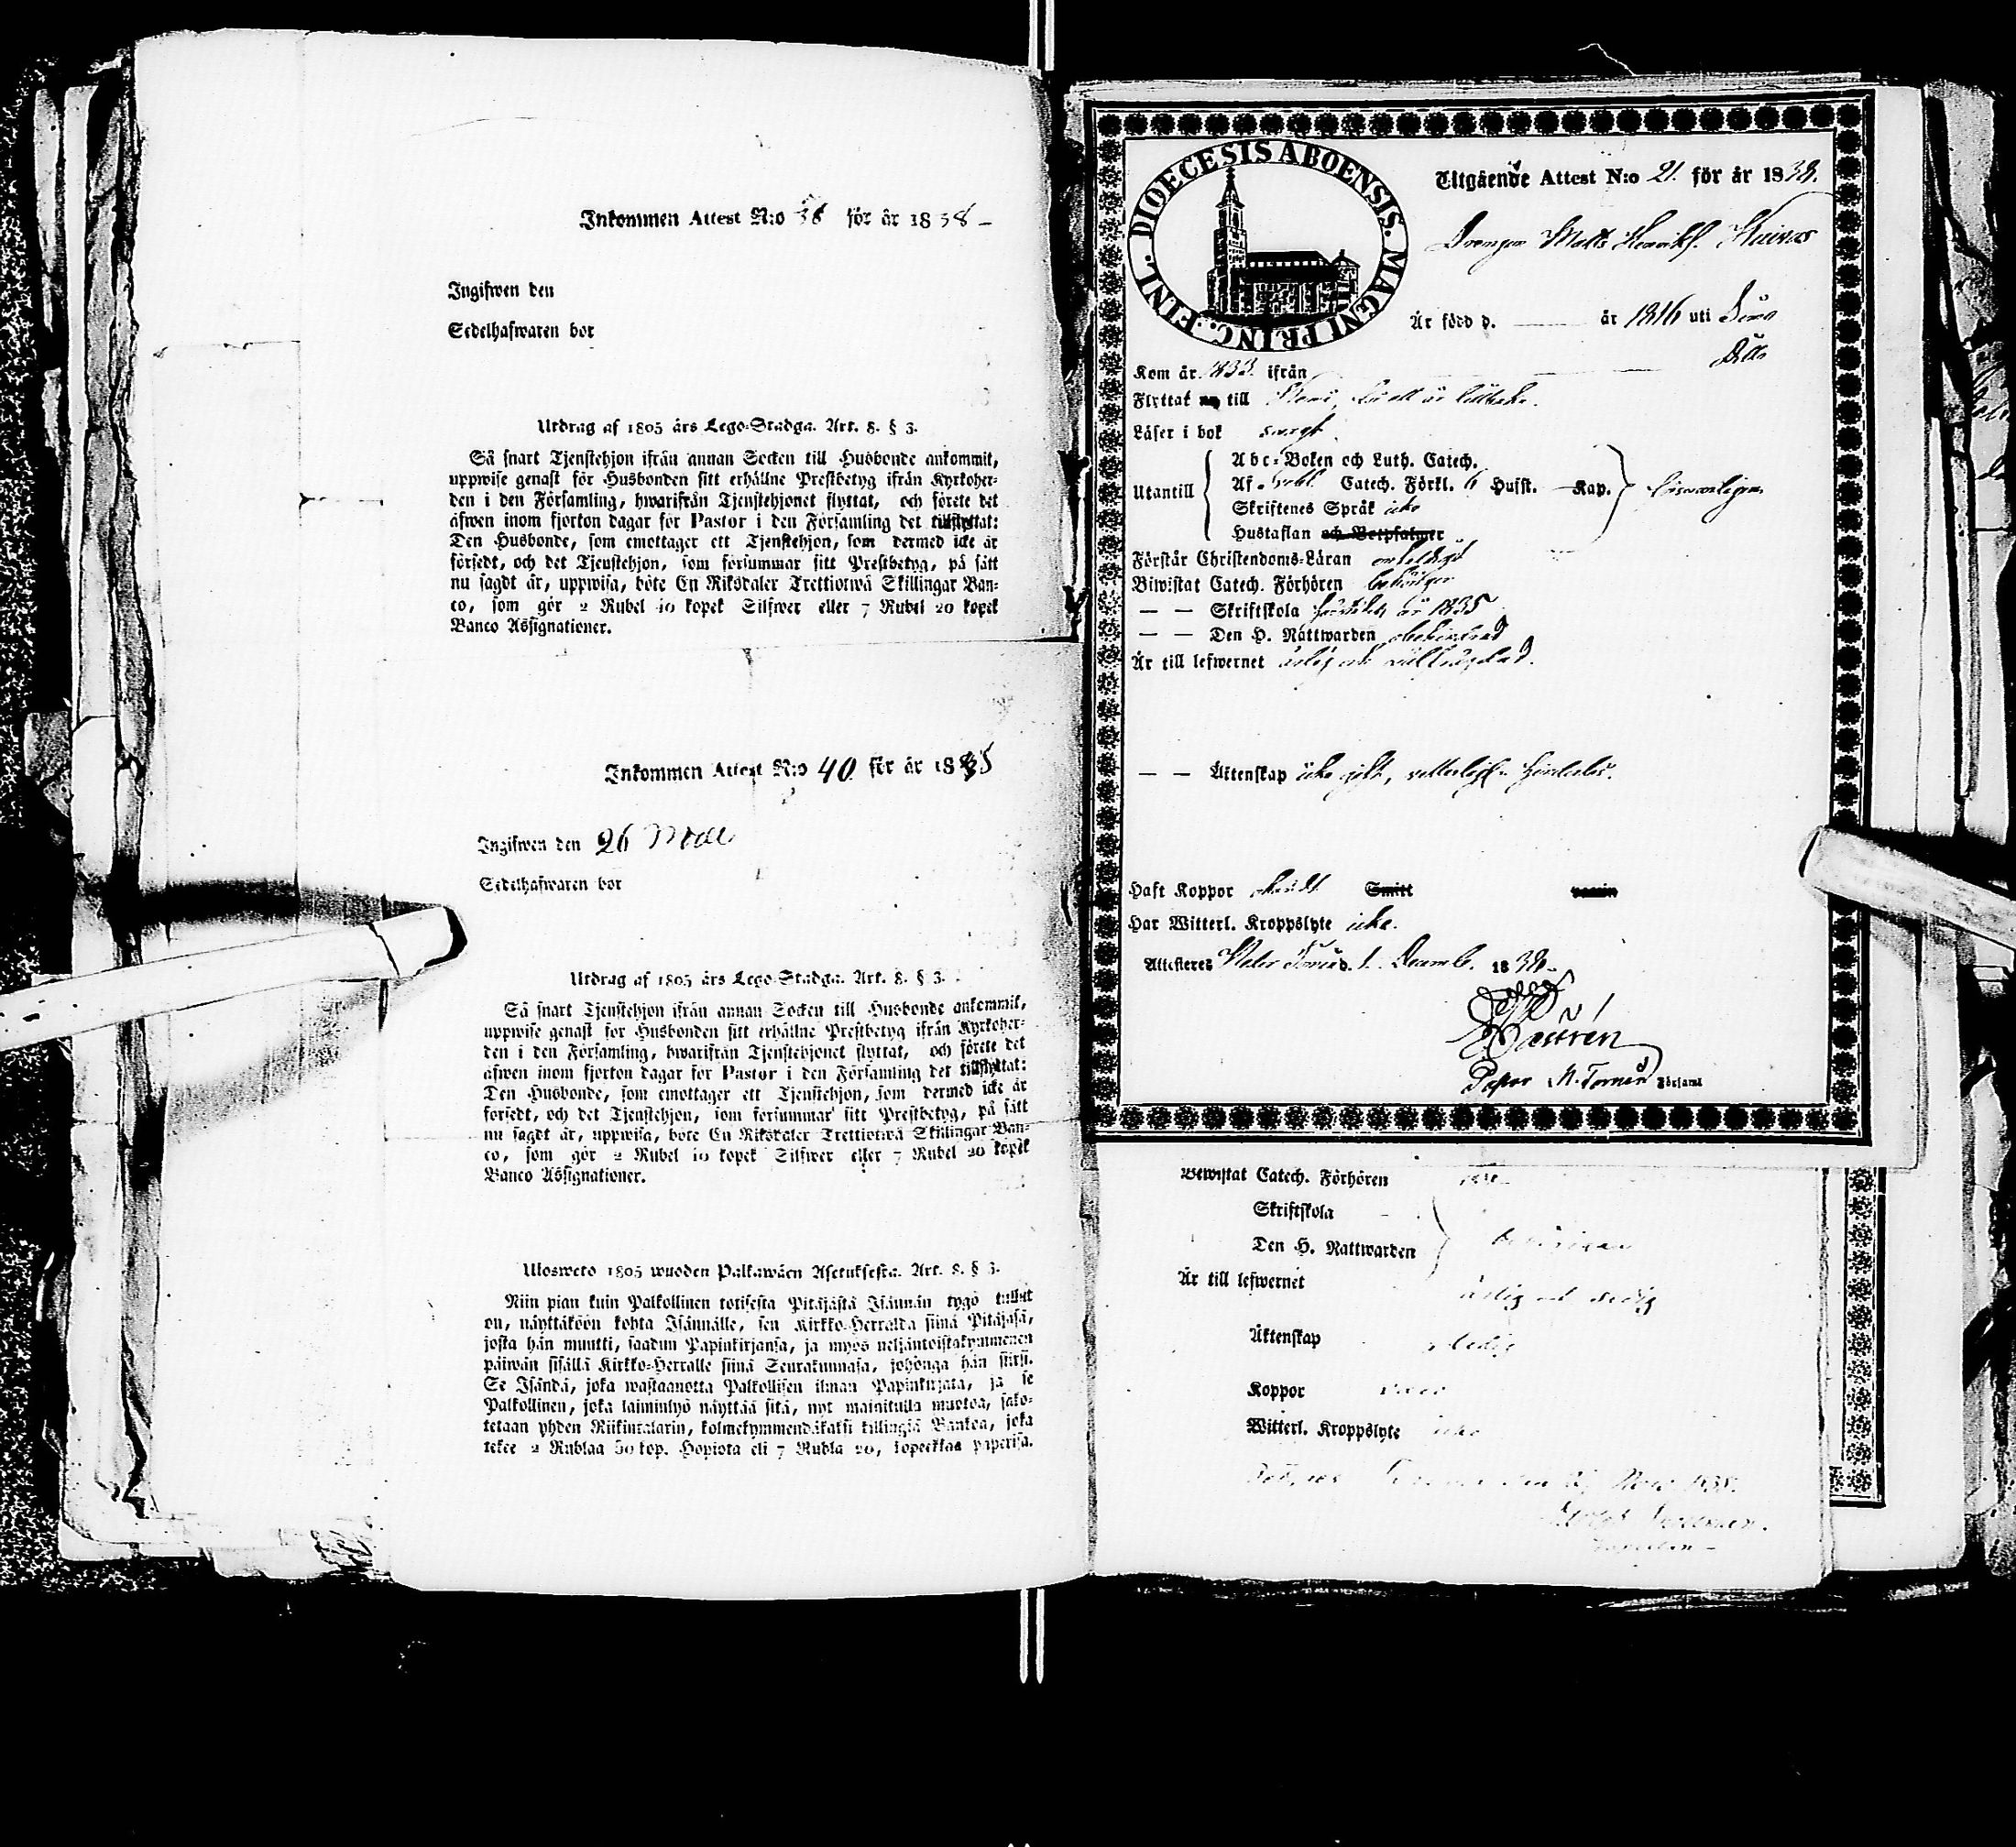 Inkommen Attest N:o 38 för år 1838 –
Ingifwen den
Sedelhafwaren bor
Utdrag af 1805 års Lego-Stadga. Art. 8. § 3.
Så snart Tjenstehjon ifrån annan Socken till Husbonde ankommit,
uppwise genast för Husbonden sitt erhållne Prestbetyg ifrån Kyrkoher-
den i den Församling, hwarifrån Tjenstehjonet flyttat, och förete det
äfwen inom fjorton dagar för Pastor i den Församling det tillflyttat:
Den Husbonde, som emottager ett Tjenstehjon, som dermed icke är
försedt, och det Tjenstehjon, som försummar sitt Prestbetyg, på sätt
nu sagdt är, uppwisa, böte En Riksdaler Trettiotwå Skillingar Ban-
co, som gör 2 Rubel 10 kopek Silfwer eller 7 Rubel 20 kopek
Banco Assignationer.
Inkommen Attest N:o 40 för år 1838
Ingifwen den 26
Sedelhafwaren bor
Utdrag af 1805 års Lego-Stadga. Art. 8. § 3.
Så snart Tjenstehjon ifrån annan Socken till Husbonde ankommit,
uppwise genast för Husbonden sitt erhållne Prestbetyg ifrån Kyrkoher-
den i den Församling, hwarifrån Tjenstehjonet flyttat, och förete det
äfwen inom fjorton dagar för Pastor i den Församling det tillflyttat:
Den Husbonde, som emottager ett Tjenstehjon, som dermed icke är
försedt, och det Tjenstehjon, som försummar sitt Prestbetyg, på sätt
nu sagdt är, uppwisa, böte En Riksdaler Trettiotwå Skillingar Ban-
co, som gör 2 Rubel 10 kopek Silfwer eller 7 Rubel 20 kopek
Banco Assignationer.
Ulosweto 1805 wuoden Palkawäen Asetuksesta. Art. 8. § 3.
Niin pian kuin Palkollinen toisesta Pitäjästä Isännän tygö tullut
on, näyttäköön kohta Isännälle, sen Kirkko-Herralda siinä Pitäjäsä,
josta hän muutti, saadun Papinkirjansa, ja myös neljäntoistakymmenen
päiwän sisällä Kirkko-Herralle siinä Seurakunnasa, johonga hän siirsi.
Se Isändä, joka wastaanotta Palkollisen ilman Papinkirjata, ja se
Palkollinen, joka laiminlyö näyttää sitä, nyt mainitulla muotoa, sako-
tetaan yhden Riikintalarin, kolmekymmendäkaksi killingiä Bankoa, joka
tekee 2 Rublaa 50 kop. Hopiota eli 7 Rubla 20, kopeekkaa paperisa.
DIOECESIS ABOENSIS. MAGNI PRINC. FINL.
Utgående Attest N:o 21. för år 1838.
Drengen Matts Henrikss.
Är född d. — år 1816 uti
Kom år 1833. ifrån
Flyttat till
Läser i bok svagt
Abc-Boken och Luth. Catech.
Utantill Af Catech. Förkl. 6 Hufst. — Kap. försvarligen
Skriftenes Språk icke
Hustaflan och Botpsalmer
Förstår Christendoms-Läran enfaldigt
Biwistat Catech. Förhören behörigen
— — Skriftskola år 1835
— — Den H. Nattwarden obehindrad
Är till lefwernet ärlig och
— — Äktenskap icke gift, hinderlös.
Haft Koppor Smitt
Har Witterl. Kroppslyte icke.
Attesteras Neder Torneå d. 1. Decemb. 1838.
Castrén
Pastor N. Torneå Församl
Bewistat Catech. Förhören
Skriftskola
Den H. Nattwarden behörigen
Är till lefwernet ärlig och
Äktenskap ledig
Koppor
Witterl. Kroppslyte icke
1838.